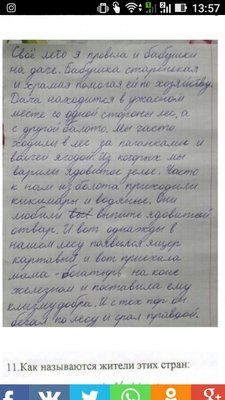 13:57
Своё лето я провела и бабушки
на даче. Бабушка старенькая
и храмая помогая ей по хозяйству.
Дача находится в ужасном
месте со одной стороны лес, а
с другой болото. Мы часто
ходили в лес за паганками и
волчей ягодой из которых мы
варили ядовитое зелье. Часто
к нам из болота приходили
кикиморы и водяные. Они
любили выпить ядовитый
отвар. И вот однажды в
нашем лесу появился ящер
картавый и вот приехала
мама - богатырь на коне
железном и поставила ему
клизму добра. И с тех пор он
бегал по лесу и срал правдой.
11.Как называются жители этих стран: